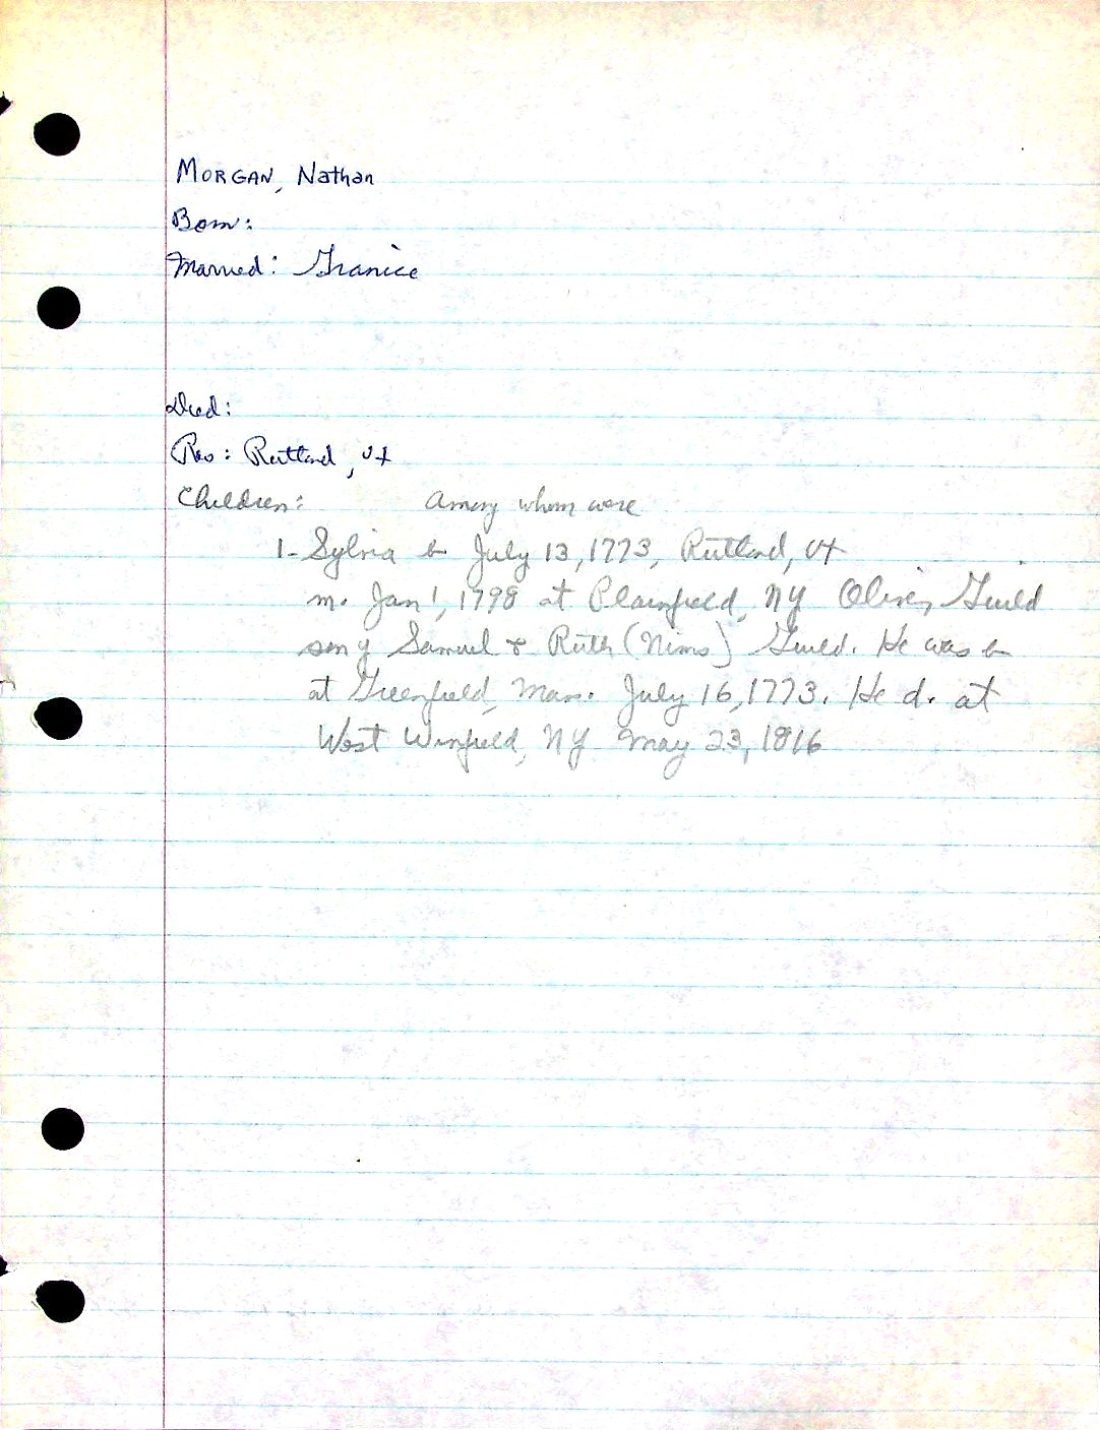 MORGAN, Nathan
Born:
Married: Granice
Died:
Res: Rutland, Vt
Children: Among whom were
1- Sylvia b July 13, 1773, Rutland, Vt
m. Jan 1, 1798 at Plainfield, NY Oliver Guild
son of Samuel & Ruth (Nims) Guild. He was b
at Greenfield, Mass. July 16, 1773. He d. at
West Winfield, NY May 23, 1816